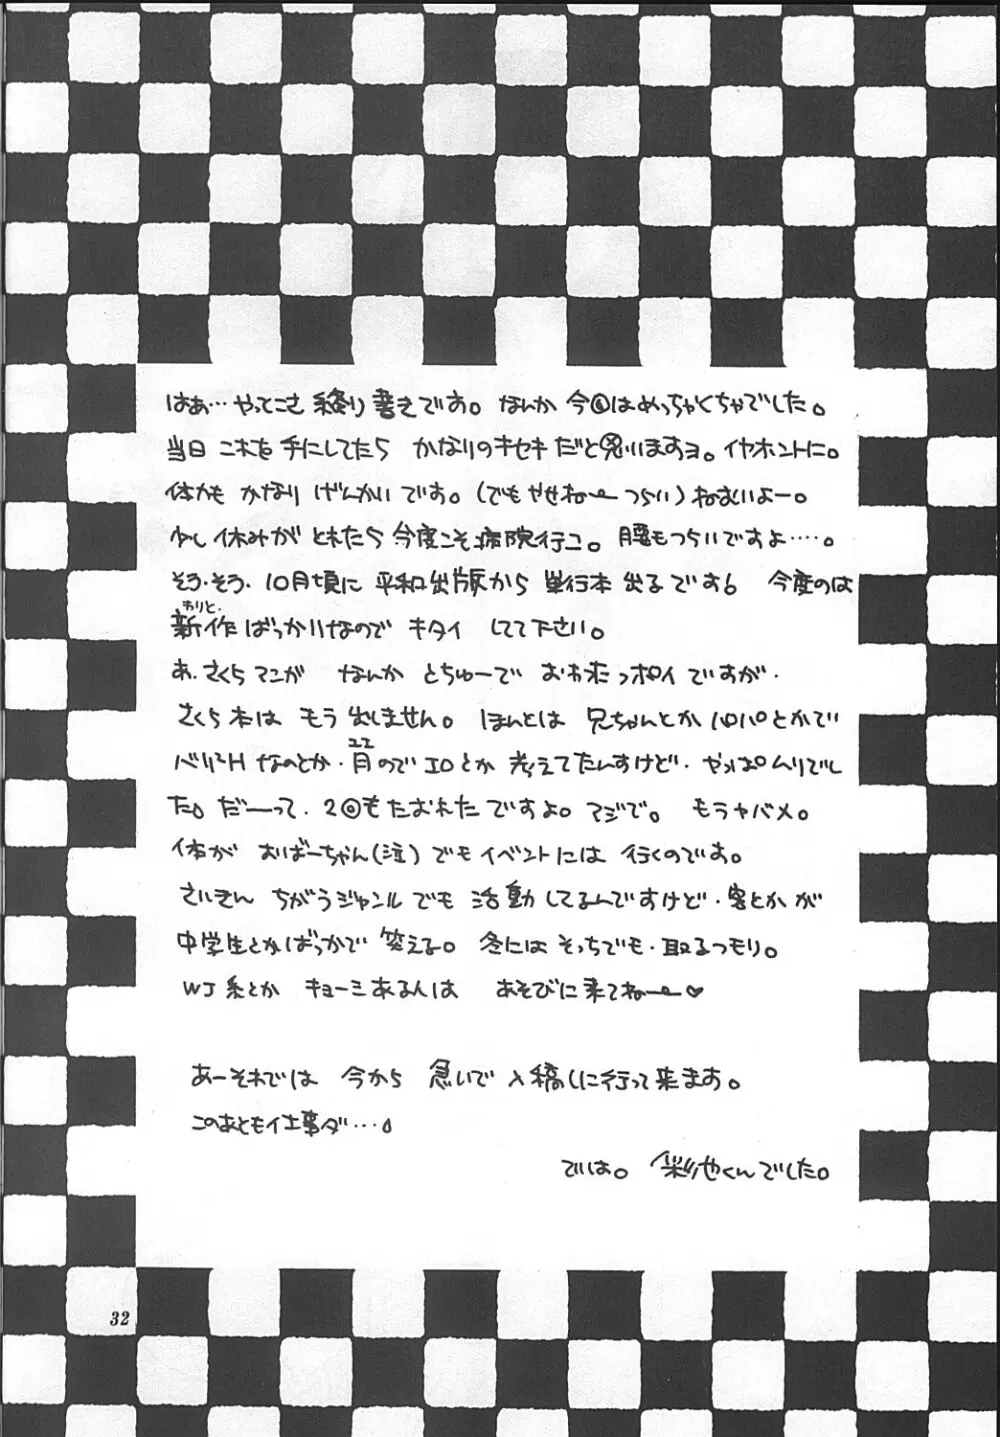 はぁ…やっとこさ 終り書きです。なんか 今回はめっちゃくちゃでした。
当日 これを 手にしてたら かなりのキセキだと思いますヨ。イヤホントに。
体力も かなり げんかいです。(でもやせねー つらい) ねむいよー。
少し休みが とれたら 今度こそ病院行こ。腰もつらいですよ…。
そう・そう・10月頃に 平和出版から 単行本 出るです。今度のは
わりと
新作ばっかりなので キタイ してて下さい。
あ、さくらマンガ なんか とちゅーで おわったっポイですが・
さくら本は もう 出しません。ほんとは 兄ちゃんとか パパとかで
バリ2Hなのとか・月のでエロとか 考えてたんすけど・やっぱムリでし
ユエ
た。だーって・2回もたおれたですよ。マジで。もうヤバメ。
体が おばーちゃん(泣)でもイベントには 行くのです。
さいきん ちがうジャンルでも 活動してるんですけど・客とかが
中学生とかばっかで 笑える。冬には そっちでも・取るつもり。
WJ系とか キョーミあるんは あそびに来てねー♡
あーそれでは 今から 急いで入稿しに行って来ます。
このあともイ士事ダ…
では。 彩池くんでした。
32